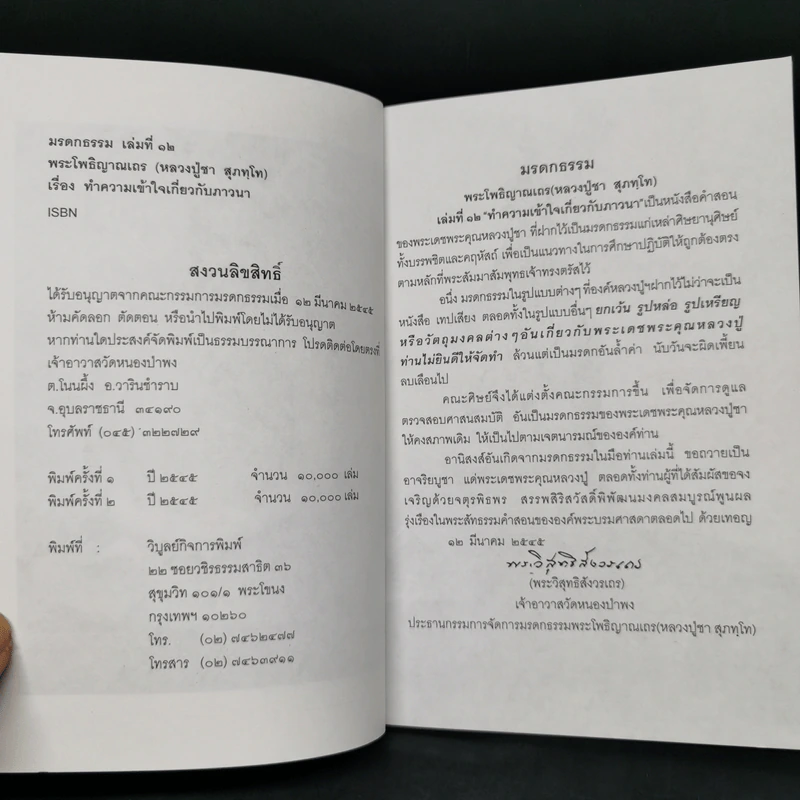 มรดกธรรม เล่มที่ ๑๒
พระโพธิญาณเถร (หลวงปู่ชา สุภทฺโท)
เรื่อง ทำความเข้าใจเกี่ยวกับภาวนา
ISBN
สงวนลิขสิทธิ์
ได้รับอนุญาตจากคณะกรรมการมรดกธรรมเมื่อ ๑๒ มีนาคม ๒๕๔๕
ห้ามคัดลอก ตัดตอน หรือนำไปพิมพ์โดยไม่ได้รับอนุญาต
หากท่านใดประสงค์จัดพิมพ์เป็นธรรมบรรณาการ โปรดติดต่อโดยตรงที่
เจ้าอาวาสวัดหนองป่าพง
ต.โนนผึ้ง อ.วารินชำราบ
จ.อุบลราชธานี ๓๔๑๙๐
โทรศัพท์ (๐๔๕) ๓๒๒๗๒๙
พิมพ์ครั้งที่ ๑ ปี ๒๕๔๕ จำนวน ๑๐,๐๐๐ เล่ม
พิมพ์ครั้งที่ ๒ ปี ๒๕๔๕ จำนวน ๑๐,๐๐๐ เล่ม
พิมพ์ที่ : วิบูลย์กิจการพิมพ์
๒๒ ซอยวชิรธรรมสาธิต ๓๖
สุขุมวิท ๑๐๑/๑ พระโขนง
กรุงเทพฯ ๑๐๒๖๐
โทร. (๐๒) ๗๔๖๒๔๗๗
โทรสาร (๐๒) ๗๔๖๓๙๑๑
มรดกธรรม
พระโพธิญาณเถร(หลวงปู่ชา สุภทฺโท)
เล่มที่ ๑๒ "ทำความเข้าใจเกี่ยวกับภาวนา"เป็นหนังสือคำสอน
ของพระเดชพระคุณหลวงปู่ชา ที่ฝากไว้เป็นมรดกธรรมแก่เหล่าศิษยานุศิษย์
ทั้งบรรพชิตและคฤหัสถ์ เพื่อเป็นแนวทางในการศึกษาปฏิบัติให้ถูกต้องตรง
ตามหลักที่พระสัมมาสัมพุทธเจ้าทรงตรัสไว้
อนึ่ง มรดกธรรมในรูปแบบต่างๆ ที่องค์หลวงปู่ฯฝากไว้ไม่ว่าจะเป็น
หนังสือ เทปเสียง ตลอดทั้งในรูปแบบอื่นๆ ยกเว้น รูปหล่อ รูปเหรียญ
หรือวัตถุมงคลต่างๆอันเกี่ยวกับพระเดชพระคุณหลวงปู่
ท่านไม่ยินดีให้จัดทำ ล้วนแต่เป็นมรดกอันล้ำค่า นับวันจะผิดเพี้ยน
ลบเลือนไป
คณะศิษย์จึงได้แต่งตั้งคณะกรรมการขึ้น เพื่อจัดการดูแล
ตรวจสอบศาสนสมบัติ อันเป็นมรดกธรรมของพระเดชพระคุณหลวงปู่ชา
ให้คงสภาพเดิม ให้เป็นไปตามเจตนารมณ์ขององค์ท่าน
อานิสงส์อันเกิดจากมรดกธรรมในมือท่านเล่มนี้ ขอถวายเป็น
อาจริยบูชา แด่พระเดชพระคุณหลวงปู่ ตลอดทั้งท่านผู้ที่ได้สัมผัสขอจง
เจริญด้วยจตุรพิธพร สรรพสิริสวัสดิ์พิพัฒนมงคลสมบูรณ์พูนผล
รุ่งเรืองในพระสัทธรรมคำสอนขององค์พระบรมศาสดาตลอดไป ด้วยเทอญ
๑๒ มีนาคม ๒๕๔๕
พระวิสุทธิสังวรเถร
(พระวิสุทธิสังวรเถร)
เจ้าอาวาสวัดหนองป่าพง
ประธานกรรมการจัดการมรดกธรรมพระโพธิญาณเถร(หลวงปู่ชา สุภทฺโท)